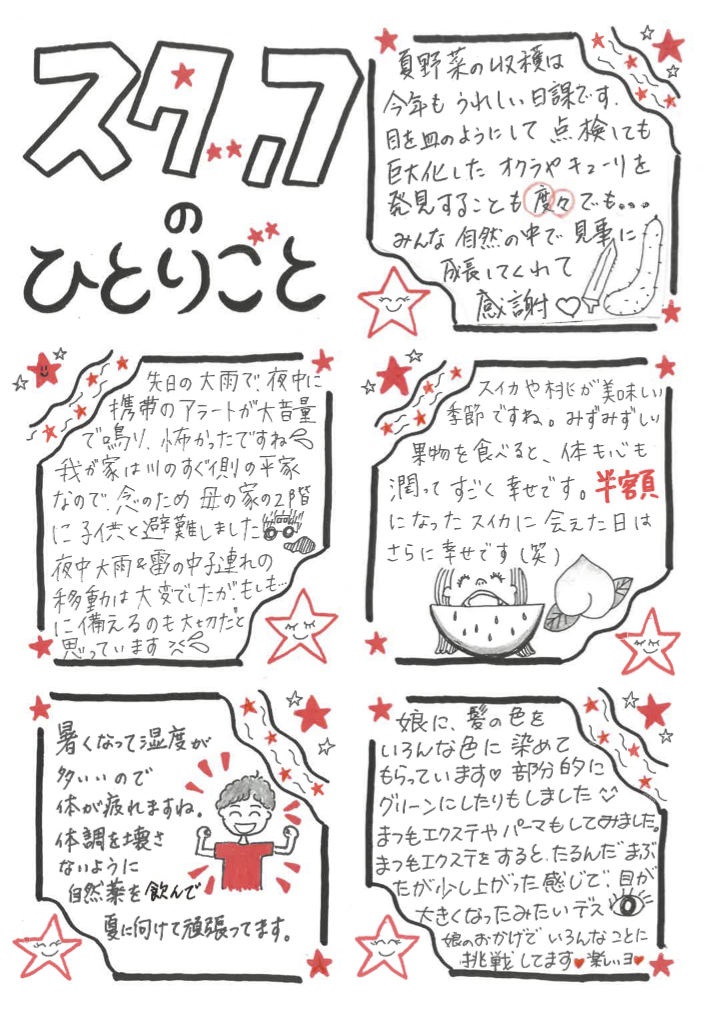 スタッフ
の
ひとりごと
夏野菜の収穫は
今年も うれしい日課です．
目を皿のようにして 点検しても
巨大化した オクラや キューリを
発見することも 度々 でも...
みんな 自然の中で 見事に
成長してくれて
感謝♡
先日の大雨で、夜中に
携帯のアラートが大音量
で鳴り、怖かったですね
我が家は川のすぐ側の平家
なので、念のため 母の家の2階
に 子供と避難しました
夜中大雨&雷の中子連れの
移動は大変でしたが、もしも…
に備えるのも大切だと
思っています
スイカや桃が美味しい
季節ですね。みずみずしい
果物を食べると、体も心も
潤って すごく 幸せです。半額
になったスイカに 会えた日は
さらに幸せです（笑）
暑くなって湿度が
多いいので
体が疲れますね。
体調を壊さ
ないように
自然薬を飲んで
夏に向けて頑張ってます。
娘に、髪の色を
いろんな色に 染めて
もらっています♡ 部分的に
グリーンにしたりもしました
まつもエクステや パーマもしてみました。
まつもエクステをすると、たるんだ まぶ
たが少し上がった感じで、目が
大きくなったみたいデス
娘のおかげで いろんなことに
挑戦してます♥楽しいヨ♥